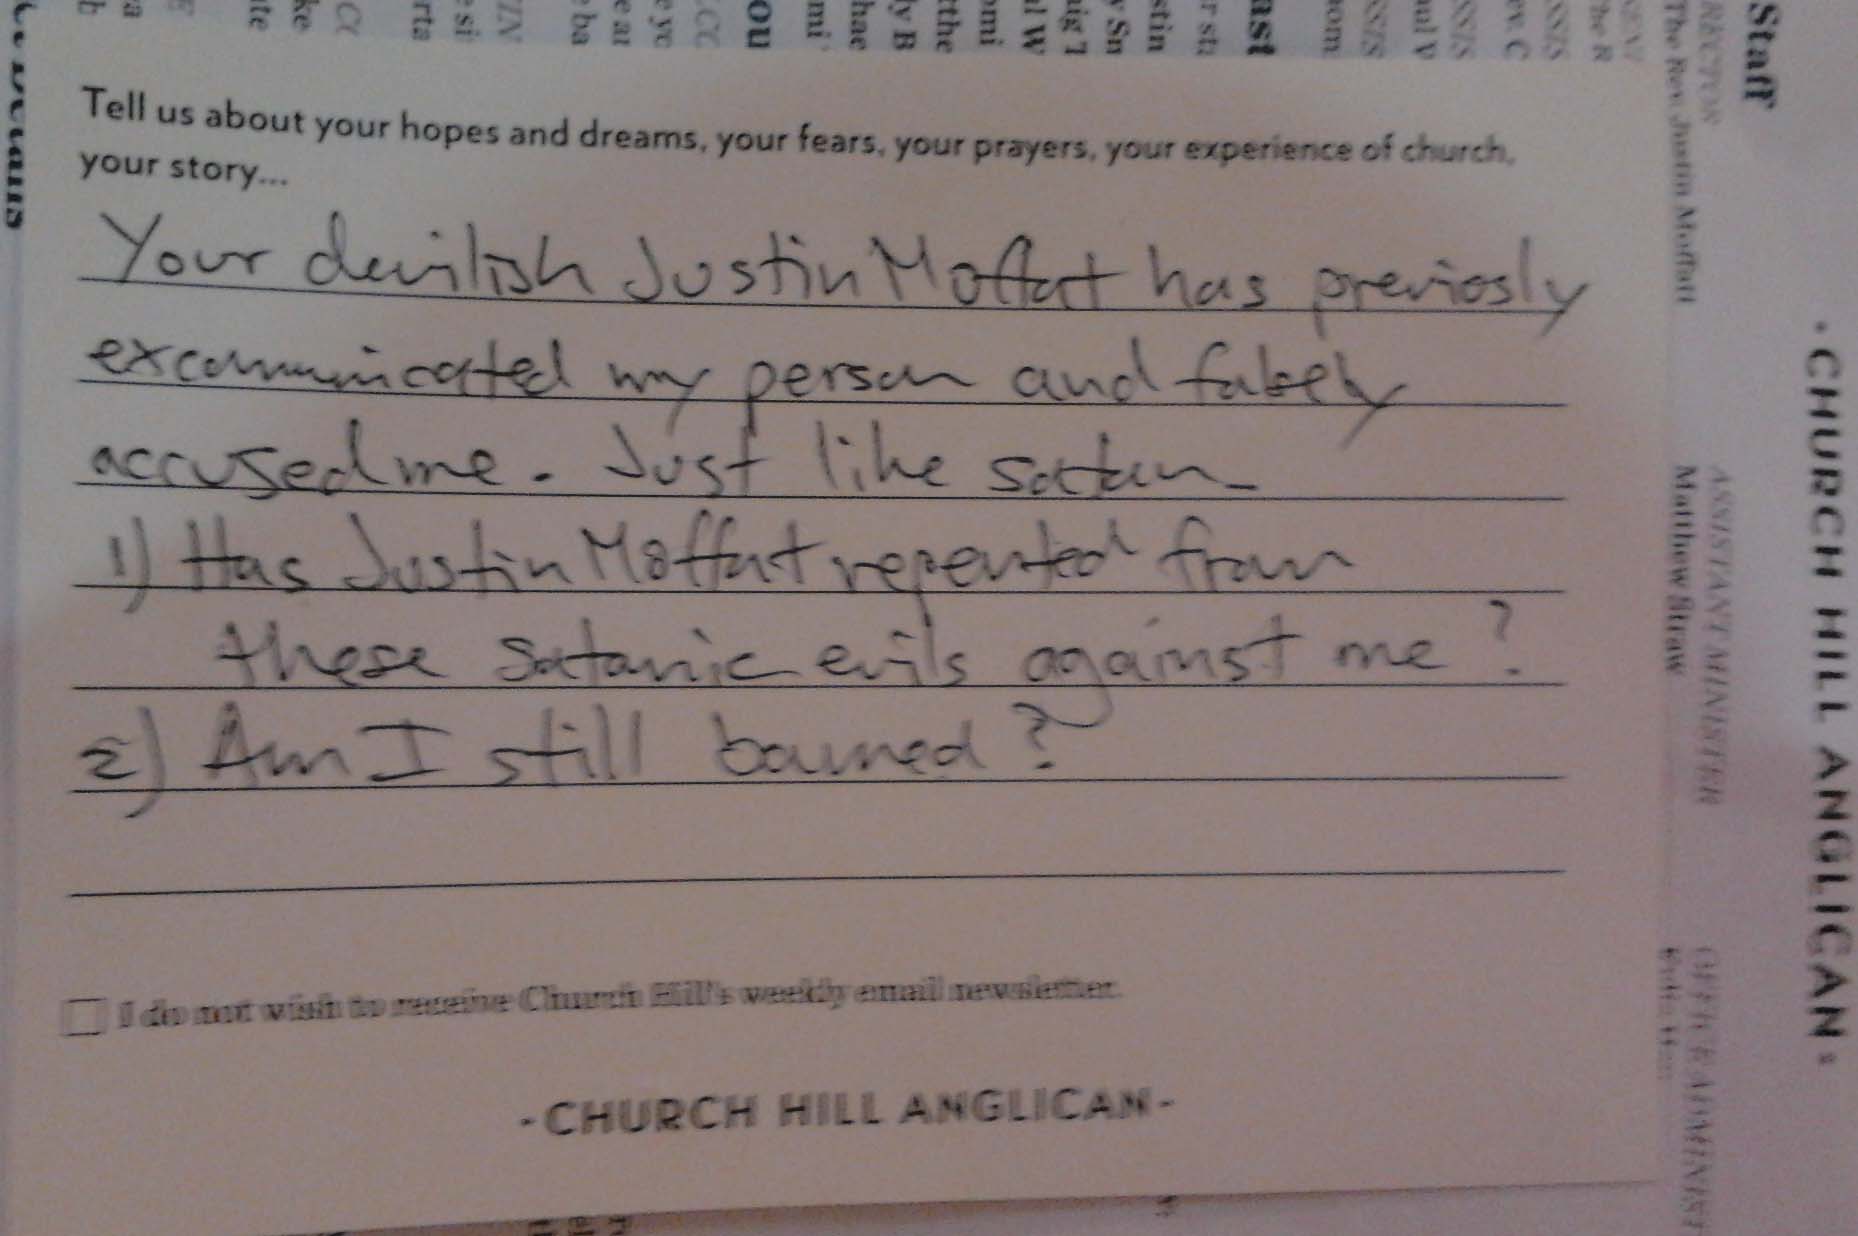 Tell us about your hopes and dreams, your fears, your prayers, your experience of church,
your story...
Your devilish Justin Moffat has previosly
excommunicated my person and falsely
accused me. Just like satan.
1) Has Justin Moffat repented from
these satanic evils against me?
2) Am I still banned?
I do not wish to receive Church Hill's weekly email newsletter.
-CHURCH HILL ANGLICAN-
·CHURCH HILL ANGLICAN·
Staff
RECTOR
The Rev Justin Moffatt
ASSISTANT MINISTER
Matthew Straw